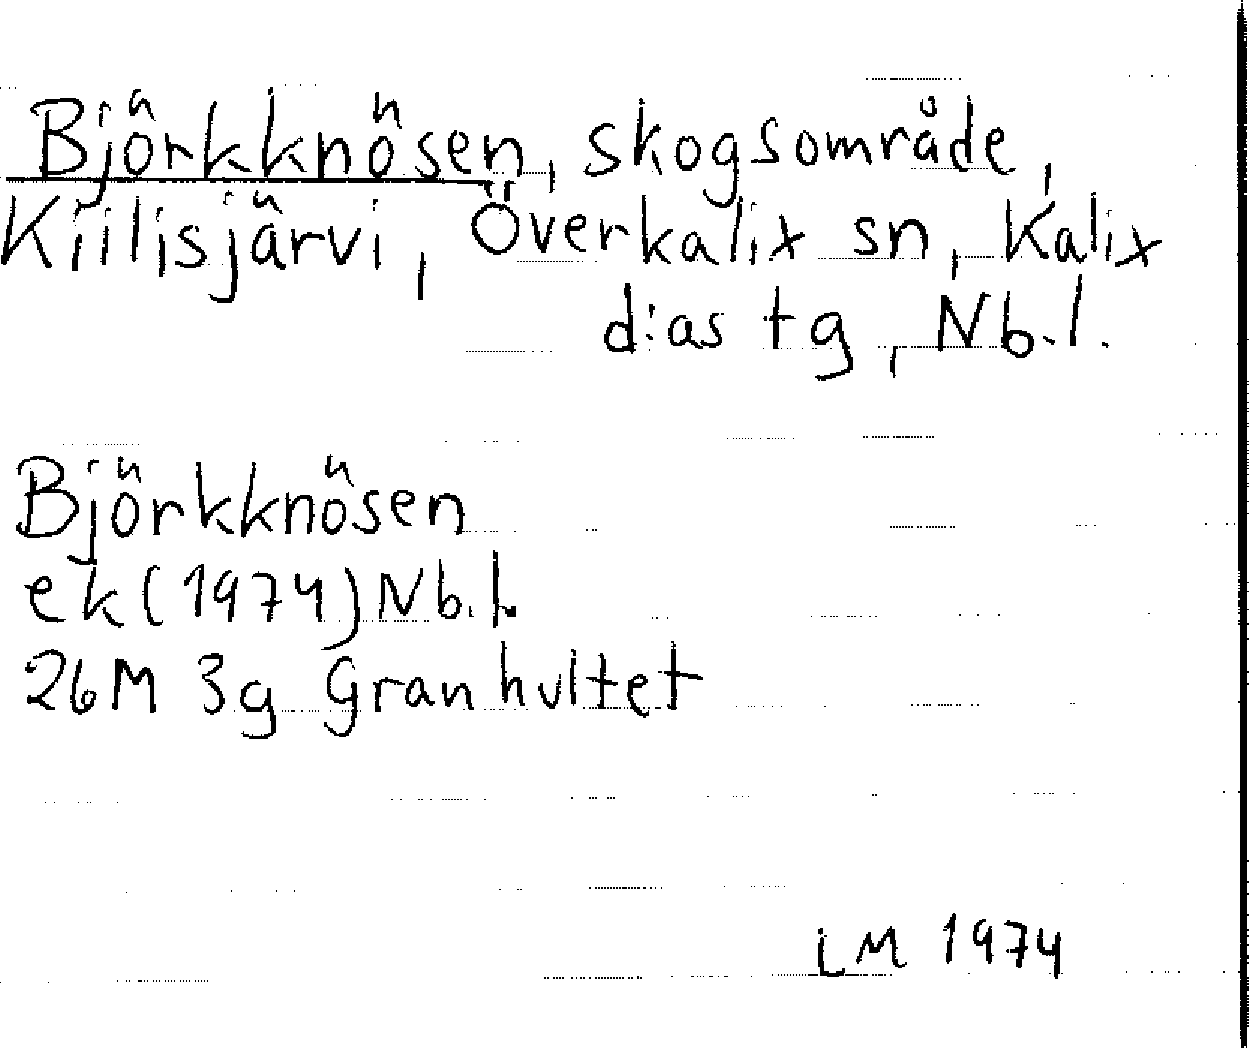 Björkknösen, skogsområde,
Kiilisjärvi, Överkalix sn, Kalix
d:as tg, Nb.l.
Björkknösen
ek (1974) Nb.l.
26M 3g Granhultet
LM 1974